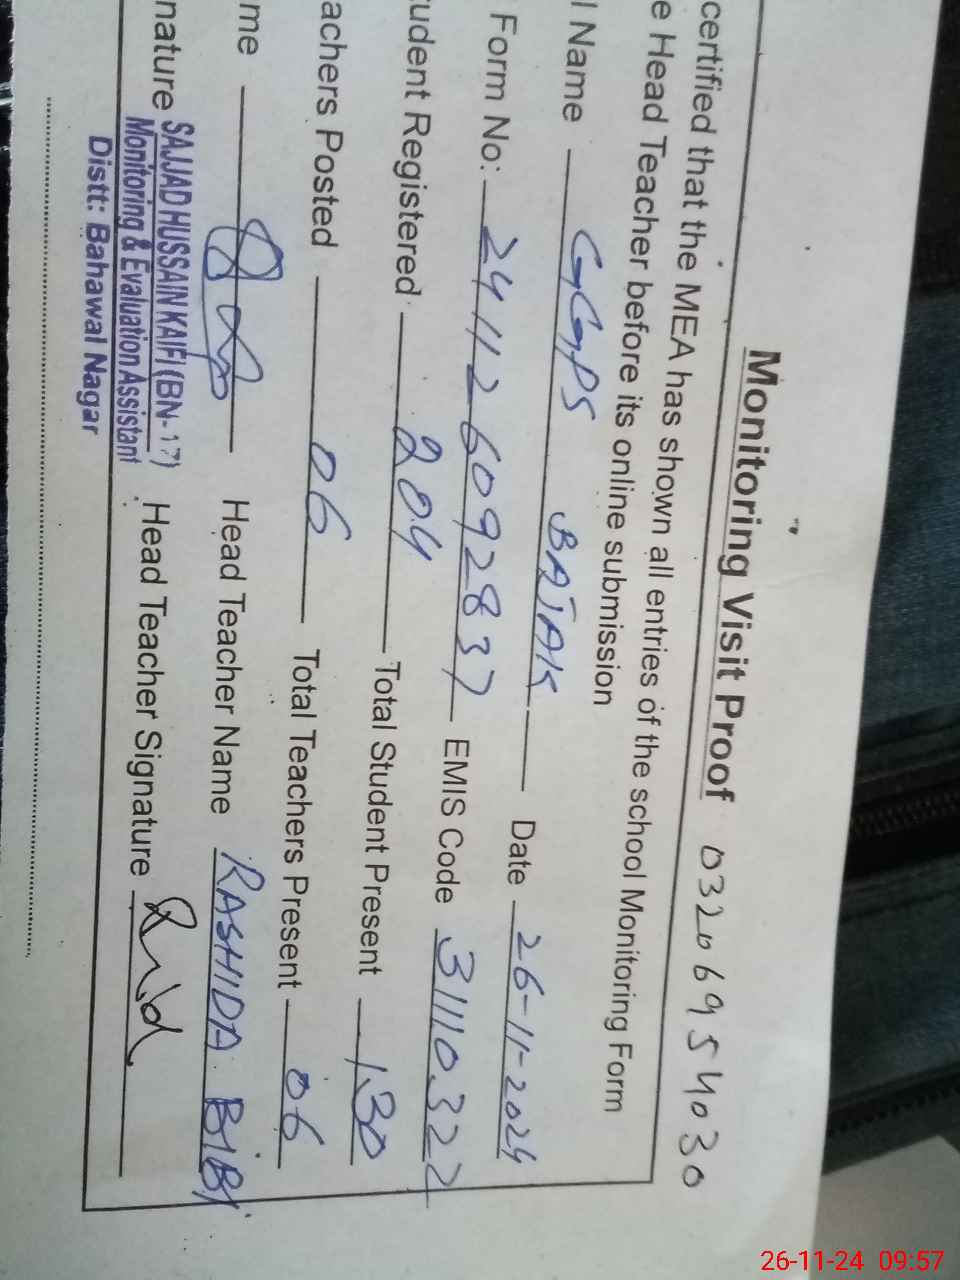 Monitoring Visit Proof 03206954030
certified that the MEA has shown all entries of the school Monitoring Form
e Head Teacher before its online submission
l Name GGPS BATAK Date 26-11-2024
Form No: 241126092837 EMIS Code 31110322
tudent Registered 204 Total Student Present 130
achers Posted 06 Total Teachers Present 06
me Head Teacher Name RASHIDA BIBI
nature SAJJAD HUSSAIN KAIFI (BN-17) Head Teacher Signature
Monitoring & Evaluation Assistant
Distt: Bahawal Nagar
26-11-24 09:57